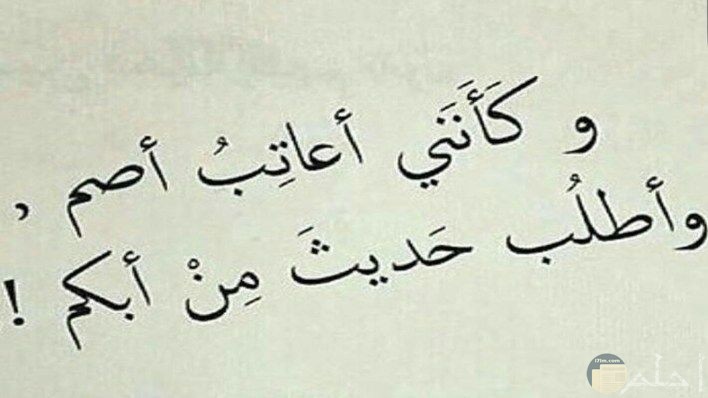 و كَأَنَني أعاتِبُ أصم ,
وأطلُب حَديثَ مِنْ أبكم !
احلم